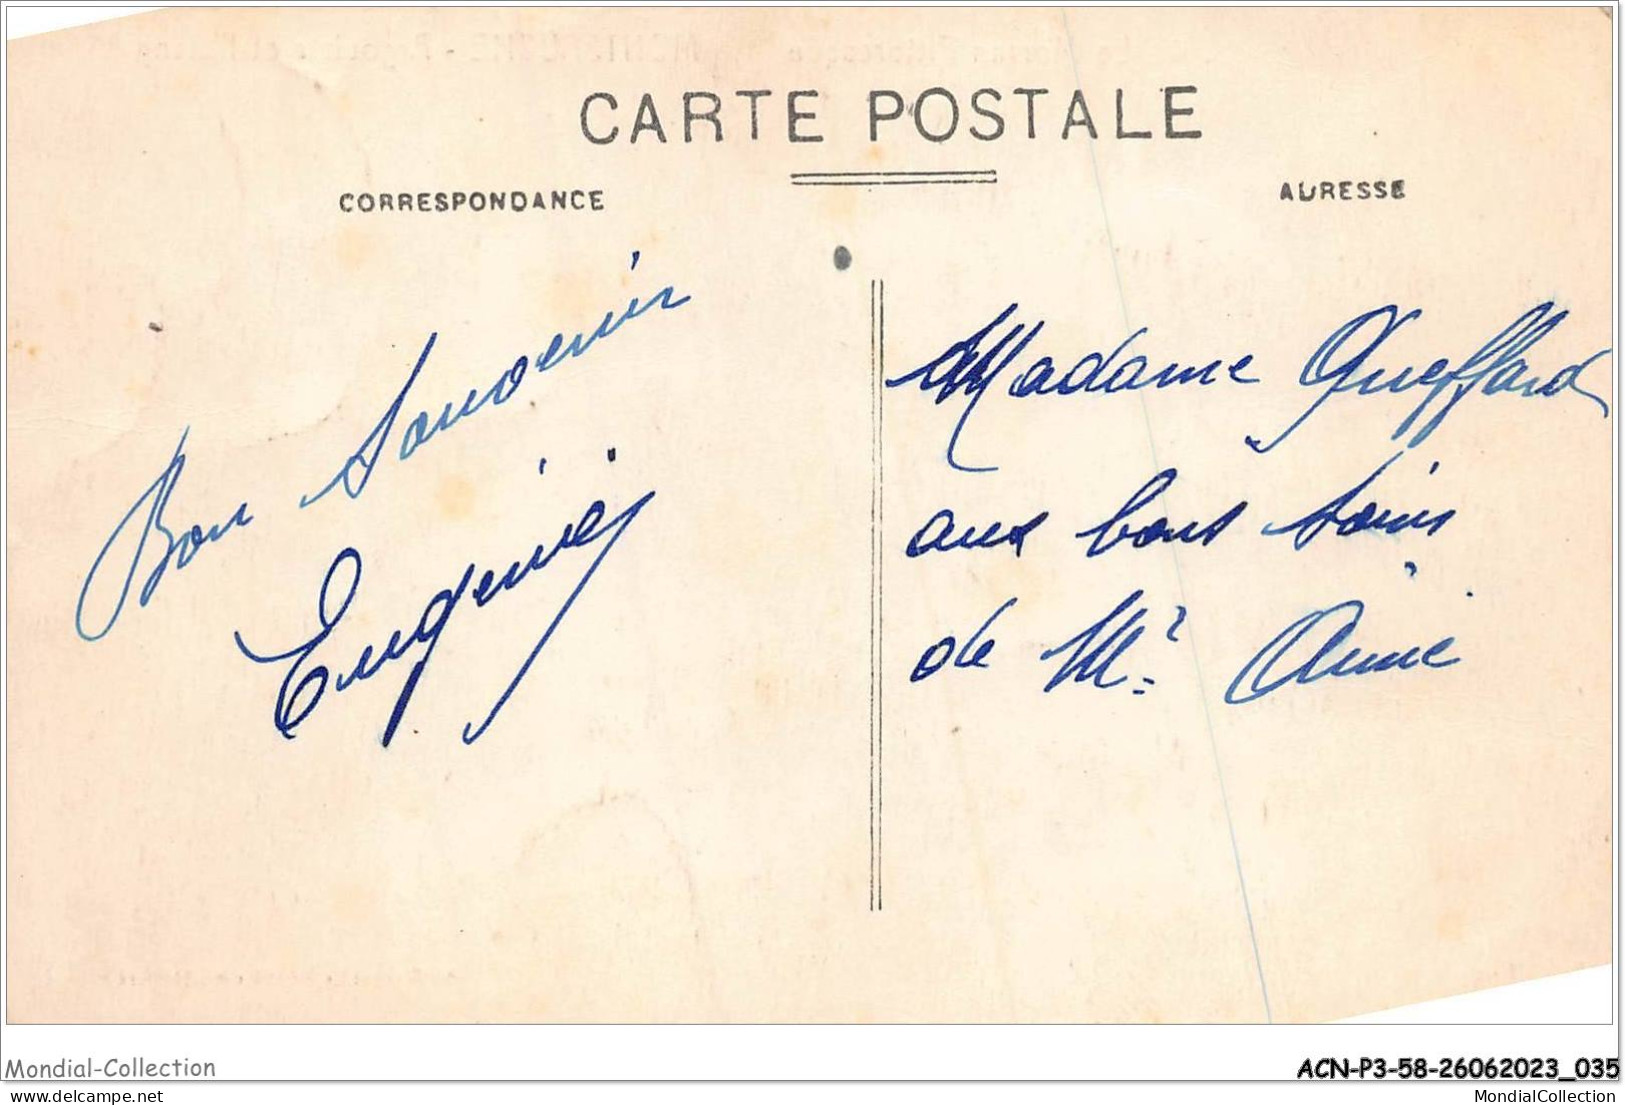 CARTE POSTALE
CORRESPONDANCE
ADRESSE
Bon Souvenir
Eugénie
Madame Queffard
aux bons soins
de Mr Aimé
Mondial-Collection
ACN-P3-58-26062023_035
www.delcampe.net
MondialCollection